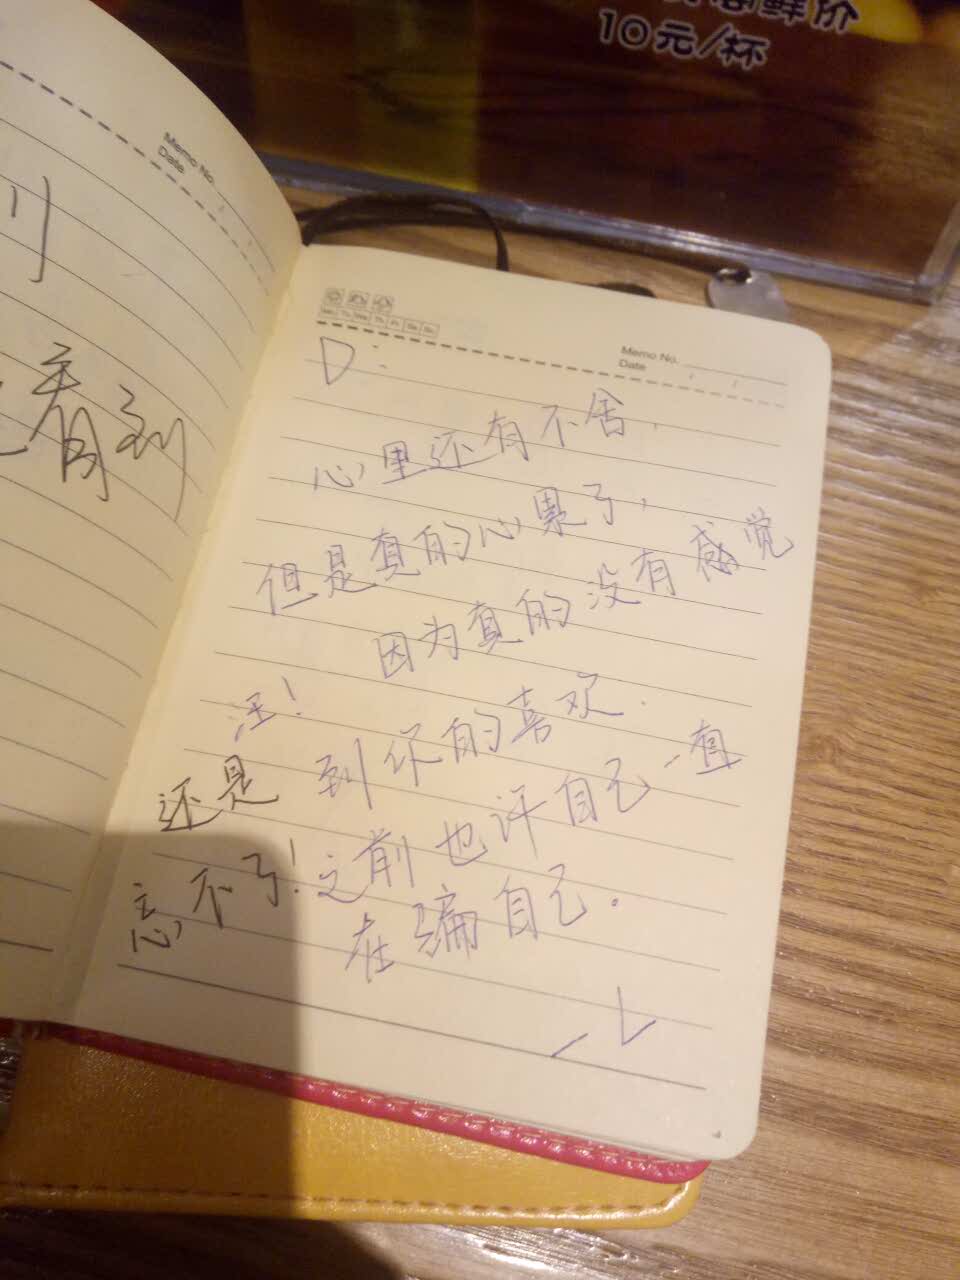 鲜价
10元/杯
Memo No.
Date
看到
Memo No.
Date
D:
心里还有不舍.
但是真的心累了,
因为真的没有感觉
到你的喜欢.
之前也许自己一直
在骗自己.
—L
汪!
还是
忘不了!